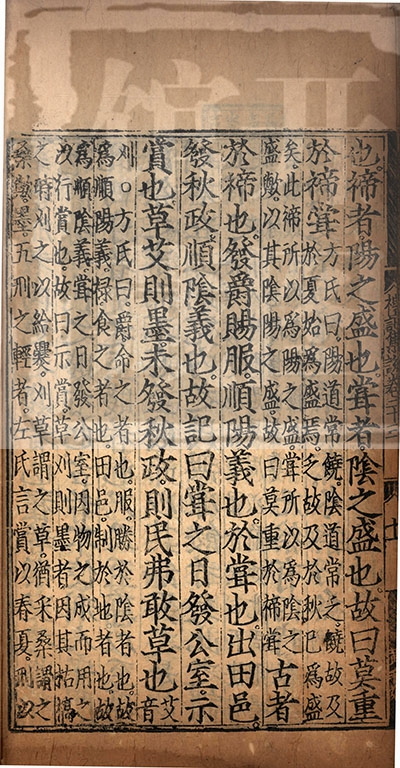 也。禘者陽之盛也。嘗者陰之盛也。故曰莫重
於禘嘗。
方氏曰。陽道常饒。陰道常乏。饒故及
於夏始爲盛焉。乏故及於秋已爲盛
矣。此禘所以爲陽之盛。嘗所以爲陰之
盛歟。以其陰陽之盛。故曰莫重於禘嘗
古者
於禘也。發爵賜服。順陽義也。於嘗也。出田邑。
發秋政。順陰義也。故記曰。嘗之日。發公室。示
賞也。草艾則墨。未發秋政。則民弗敢草也
艾
音
刈。○方氏曰。爵命之者也。服勝於陰者也。故
爲順陽義。祿食之者也。田邑制於地者也。故
爲順陰義。嘗之日發公室。因物之成而用之
以行賞也。故曰示賞。草刈則墨者。因其枯槁
之時刈之以給爨。刈草謂之草。猶采桑謂之
桑歟。墨五刑之輕者。左氏言賞以春夏。刑以